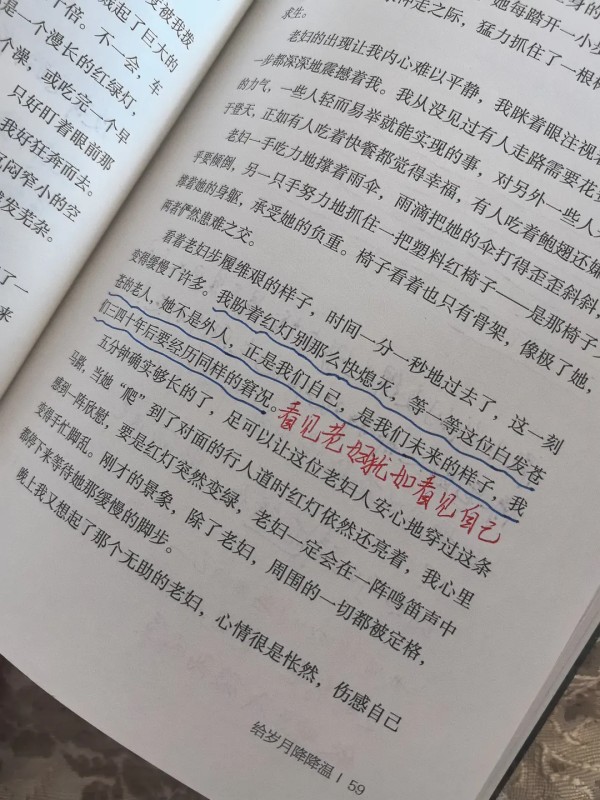 变被我拨
成起了巨大的
十倍。不一会，车
是一个漫长的红绿灯，
个澡，或吃完一个早
只好盯着眼前那
我好狂奔而去。
闷窄小的空
发芜杂。
了一
来
求生。
老妇的出现让我内心难以平静，我眯着眼注视着
步都深深地震撼着我。我从没见过有人走路需要花费
的力气，一些人轻而易举就能实现的事，对另外一些人
于登天，正如有人吃着快餐都觉得幸福，有人吃着鲍翅还嫌
老妇一手吃力地撑着雨伞，雨滴把她的伞打得歪歪斜斜，
乎要倾倒，另一只手努力地抓住一把塑料红椅子——是那椅子
撑着她的身躯，承受她的负重。椅子看着也只有骨架，像极了她，
两者俨然患难之交。
看着老妇步履维艰的样子，时间一分一秒地过去了，这一刻
变得缓慢了许多。我盼着红灯别那么快熄灭，等一等这位白发苍
苍的老人，她不是外人，正是我们自己，是我们未来的样子，我
们三四十年后要经历同样的窘况。
看见老妇犹如看见自己
五分钟确实够长的了，足可以让这位老妇人安心地穿过这条
马路，当她“爬”到了对面的行人道时红灯依然还亮着，我心里
感到一阵欣慰，要是红灯突然变绿，老妇一定会在一阵鸣笛声中
变得手忙脚乱。刚才的景象，除了老妇，周围的一切都被定格，
都停下来等待她那缓慢的脚步。
晚上我又想起了那个无助的老妇，心情很是怅然，伤感自己
给岁月降降温 | 59